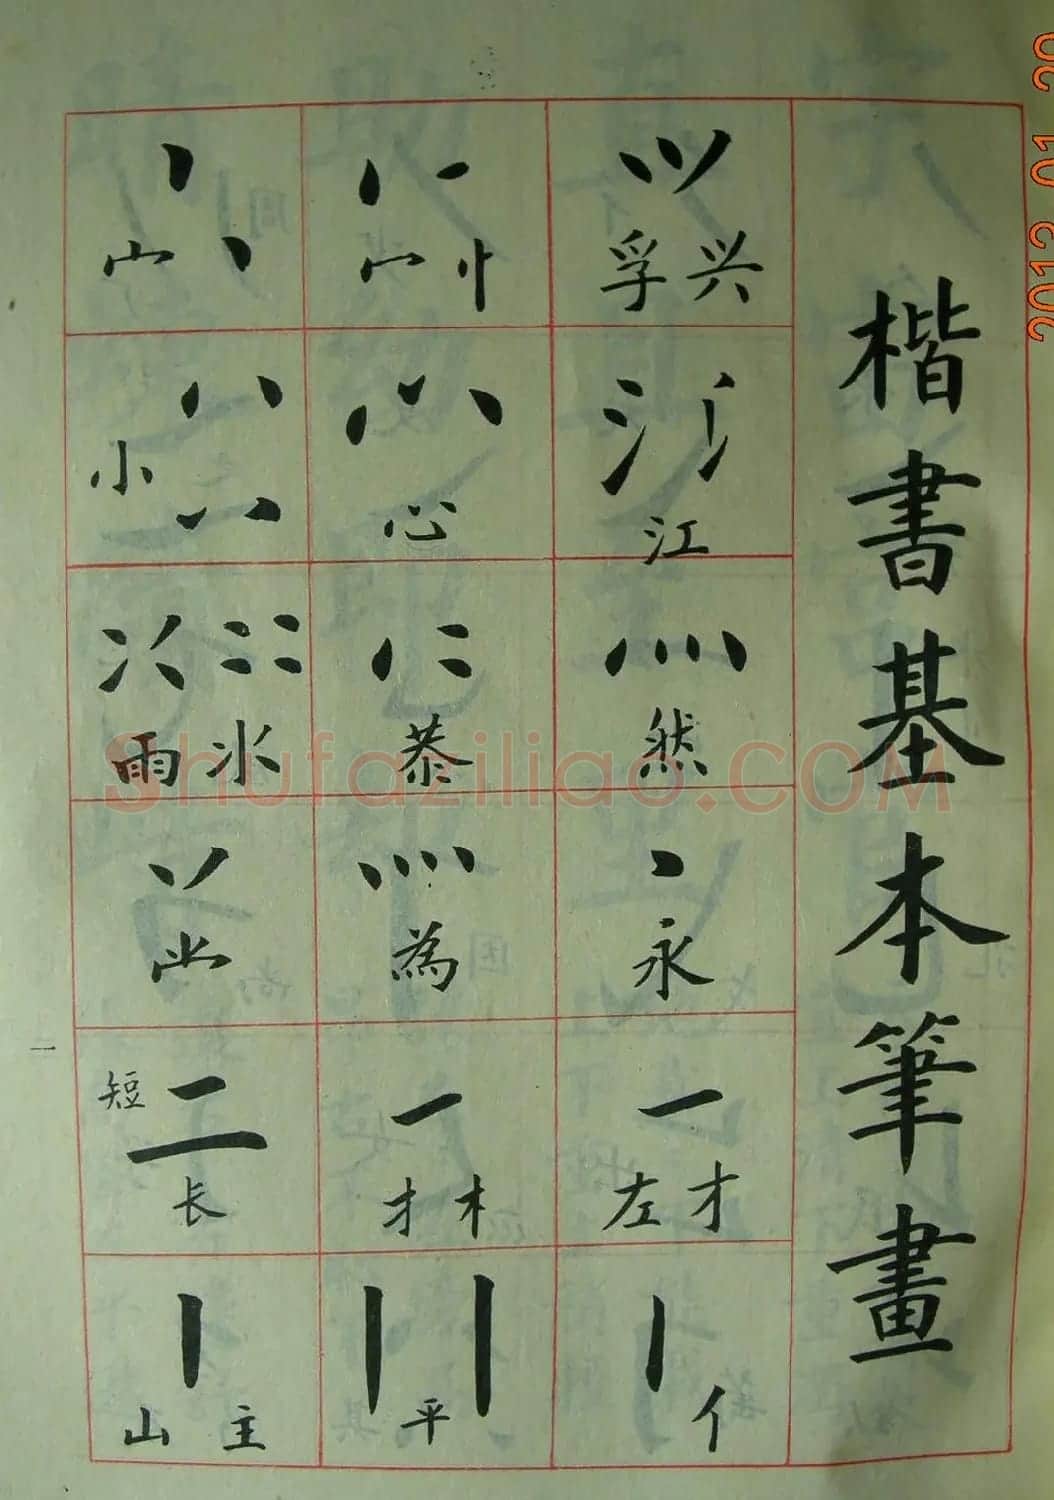 楷書基本筆畫
孚 兴
江
然
永
左 才
亻
宀 忄
心
恭
為
扌 木
平
宀
小
雨 水
短
长
山 主
一
Shufaziliao.COM
2012 01 20